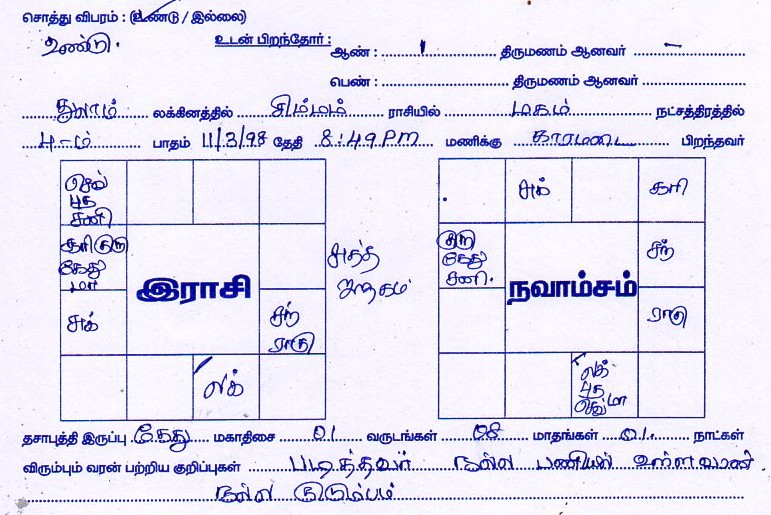 சொத்து விபரம் : (உண்டு / இல்லை)
உண்டு. உடன் பிறந்தோர் : ஆண் : 1 திருமணம் ஆனவர் –
பெண் : திருமணம் ஆனவர்
துலாம் லக்கினத்தில் சிம்மம் ராசியில் மகம் நட்சத்திரத்தில்
4-ம் பாதம் 11/3/98 தேதி 8:49 PM மணிக்கு காரமடை பிறந்தவர்
செவ்
புத
சனி
சூரி குரு
கேது
மா
சுக்
இராசி
சந்
ராகு
லக்
சுக்
சூரி
குரு
கேது
சனி.
நவாம்சம்
சந்
ராகு
லக்
புத
செவ் மா
தசாபுத்தி இருப்பு கேது மகாதிசை 01 வருடங்கள் 08 மாதங்கள் 01. நாட்கள்
விரும்பும் வரன் பற்றிய குறிப்புகள் படித்தவர் நல்ல பணியில் உள்ளவர்
நல்ல குடும்பம்